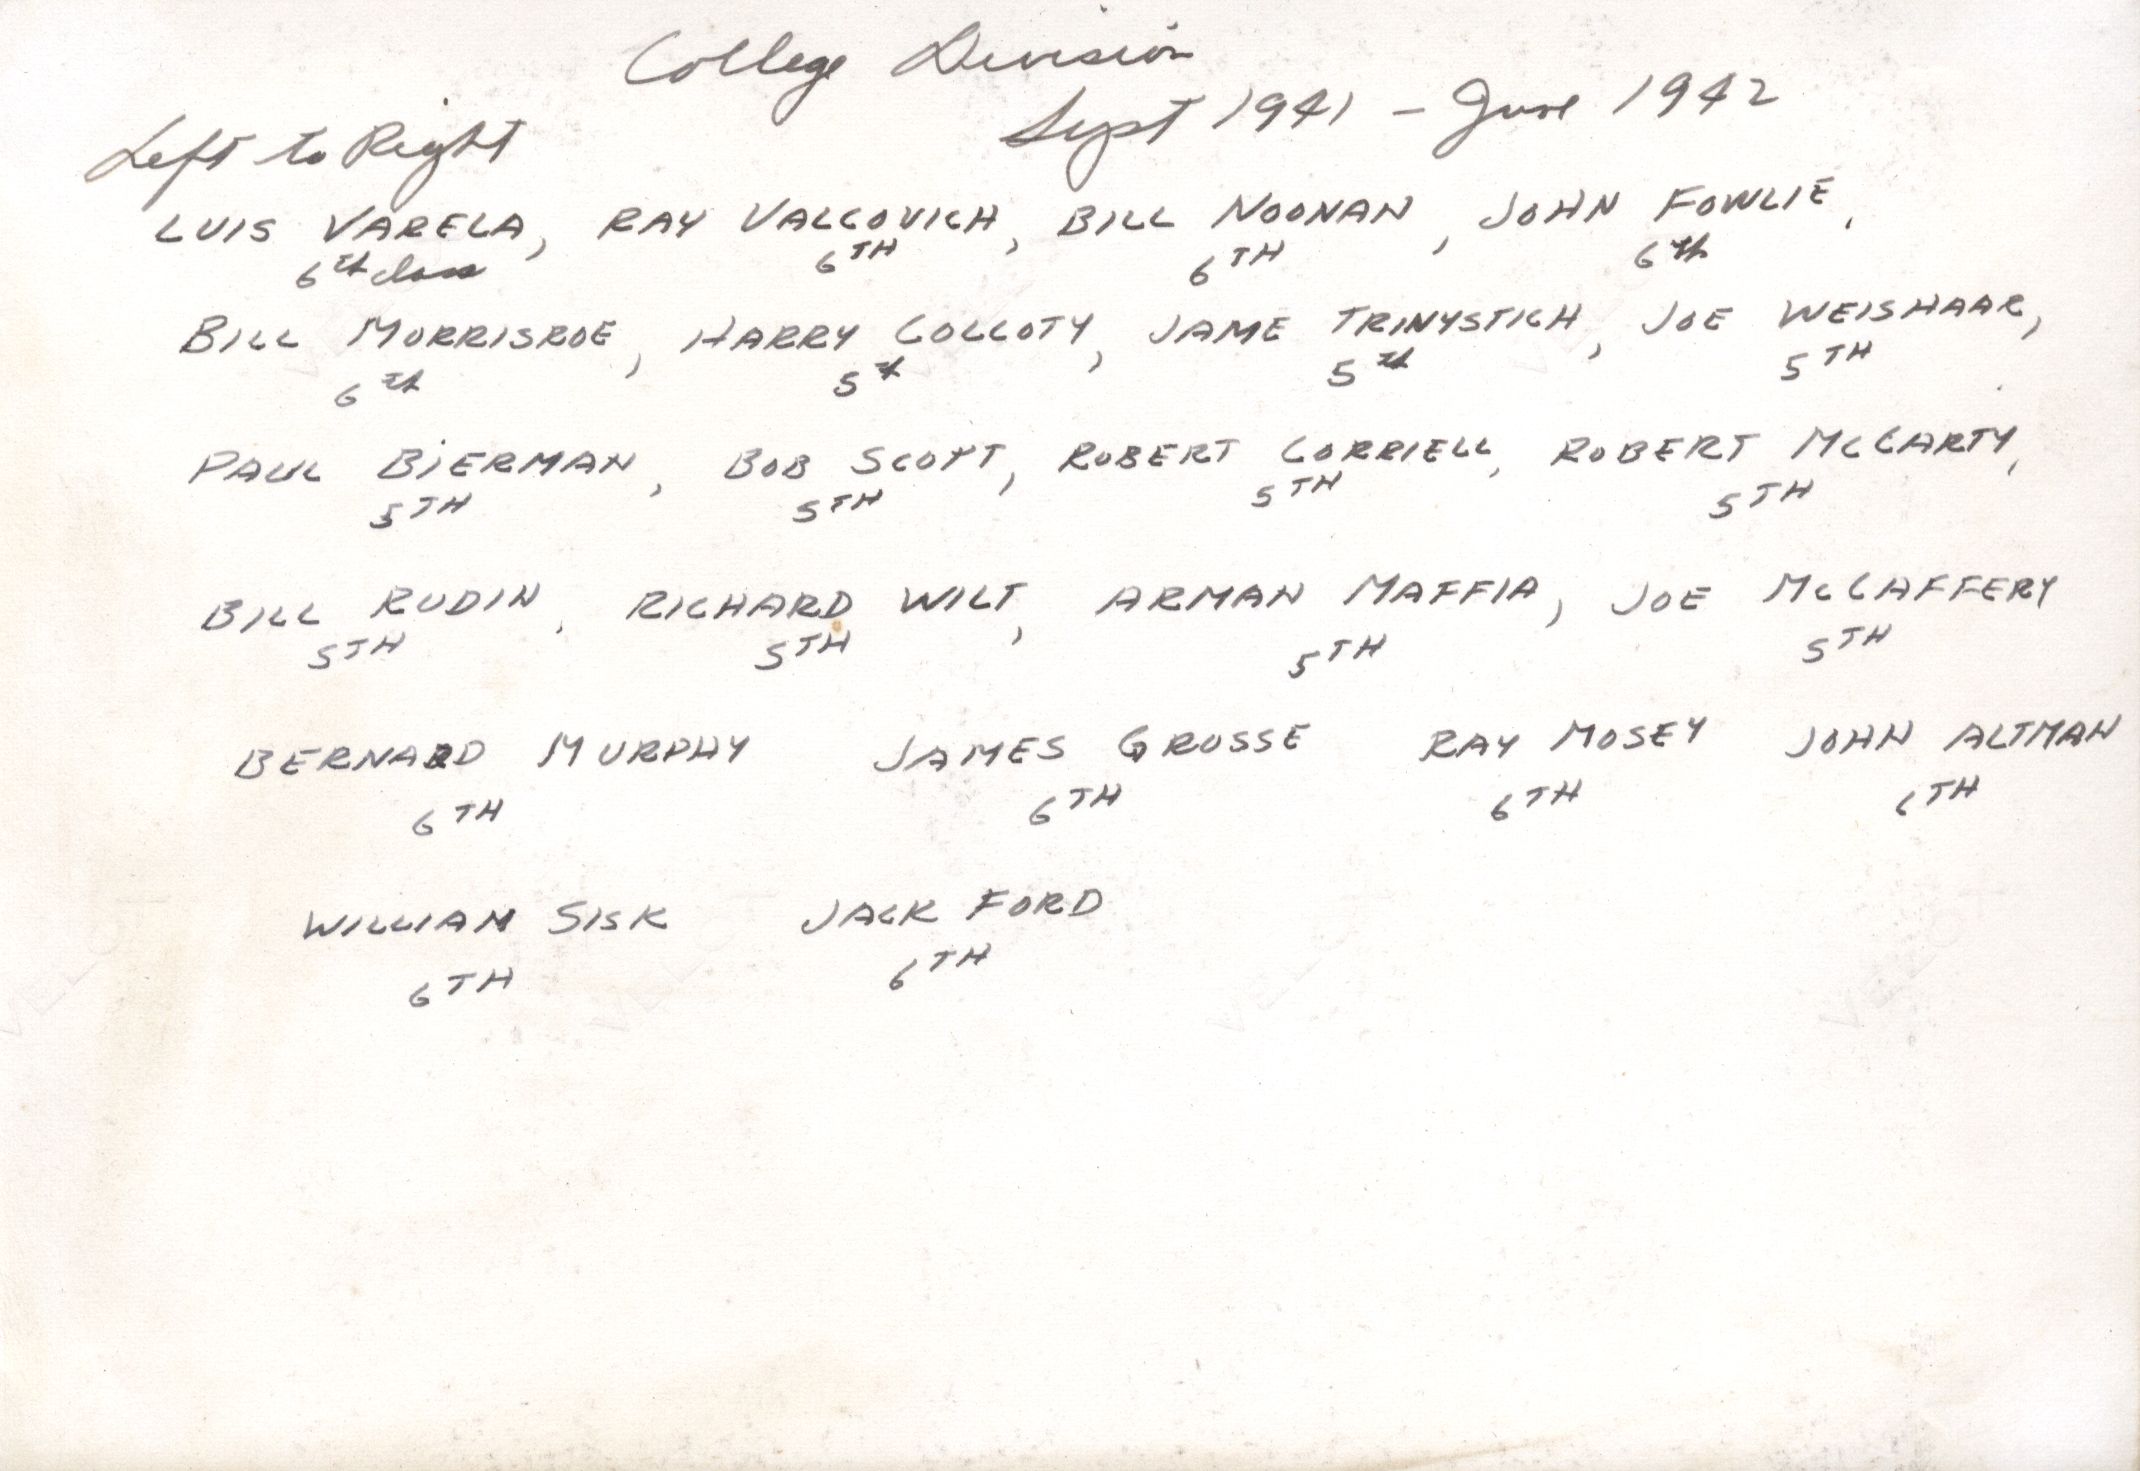 College Division
Sept 1941 - June 1942
Left to Right
LUIS VARELA, RAY VALCOVICH, BILL NOONAN, JOHN FOWLIE,
6th class 6TH 6TH 6th
BILL MORRISROE, HARRY COLLOTY, JAME TRINYSTICH, JOE WEISHAAR,
6th 5th 5th 5TH
PAUL BIERMAN, BOB SCOTT, ROBERT CORRIELL, ROBERT McCARTY,
5TH 5TH 5TH 5TH
BILL RUDIN, RICHARD WILT, ARMAN MAFFIA, JOE McCAFFERY
5TH 5TH 5TH 5TH
BERNARD MURPHY JAMES GROSSE RAY MOSEY JOHN ALTMAN
6TH 6TH 6TH 6TH
WILLIAM SISK JACK FORD
6TH 6TH